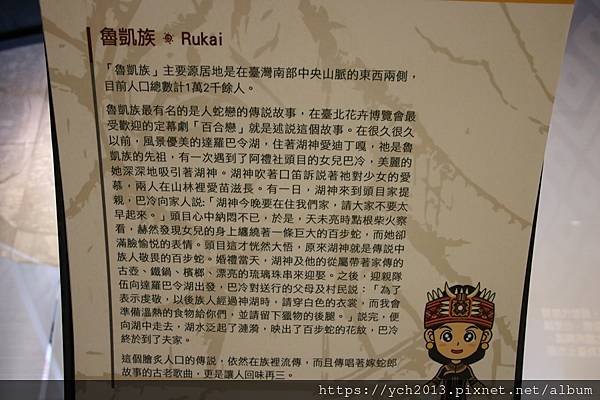 魯凱族 Rukai
「魯凱族」主要源居地是在臺灣南部中央山脈的東西兩側，
目前人口總數計1萬2千餘人。
魯凱族最有名的是人蛇戀的傳說故事，在臺北花卉博覽會最
受歡迎的定幕劇「百合戀」就是述說這個故事。在很久很久
以前，風景優美的達羅巴令湖，住著湖神愛迪丁嘎，祂是魯
凱族的先祖，有一次遇到了阿禮社頭目的女兒巴冷，美麗的
她深深地吸引著湖神。湖神吹著口笛訴說著祂對少女的愛
慕，兩人在山林裡愛苗滋長。有一日，湖神來到頭目家提
親，巴冷向家人說:「湖神今晚要在住我們家，請大家不要太
早起來。」頭目心中納悶不已，於是，天未亮時點根柴火察
看，赫然發現女兒的身上纏繞著一條巨大的百步蛇，而她卻
滿臉愉悅的表情。頭目這才恍然大悟，原來湖神就是傳說中
族人敬畏的百步蛇。婚禮當天，湖神及他的從屬帶著家傳的
古壺、鐵鍋、檳榔、漂亮的琉璃珠串來迎娶。之後，迎親隊
伍向達羅巴令湖出發，巴冷對送行的父母及村民說：「為了
表示虔敬，以後族人經過神湖時，請穿白色的衣裳，而我會
準備溫熱的食物給你們，並請留下獵物的後腿。」說完，便
向湖中走去，湖水泛起了漣漪，映出了百步蛇的花紋，巴冷
終於到了夫家。
這個膾炙人口的傳說，依然在族裡流傳，而且傳唱著嫁蛇郎
故事的古老歌曲，更是讓人回味再三。
https://ych2013.pixnet.net/album